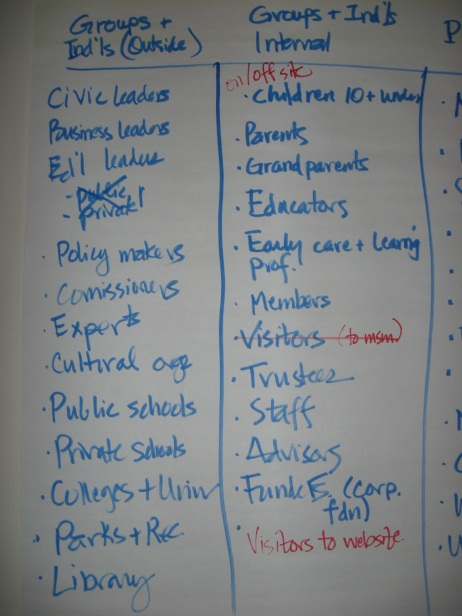 Groups +
Ind'ls (Outside)
Civic leaders
Business leaders
Ed'l leaders
- public
- private
· Policy makers
· Comissioners
· Experts
· Cultural org
· Public schools
· Private Schools
· Colleges + Univ
· Parks + Rec.
· Library
Groups + Ind'ls
Internal
on/off site
· Children 10 + under
· Parents
· Grandparents
· Educators
· Early care + Learning
Prof.
· Members
· Visitors (to msm)
· Trustees
· Staff
· Advisors
· Funders (corp.
fdn)
· Visitors to website.
P